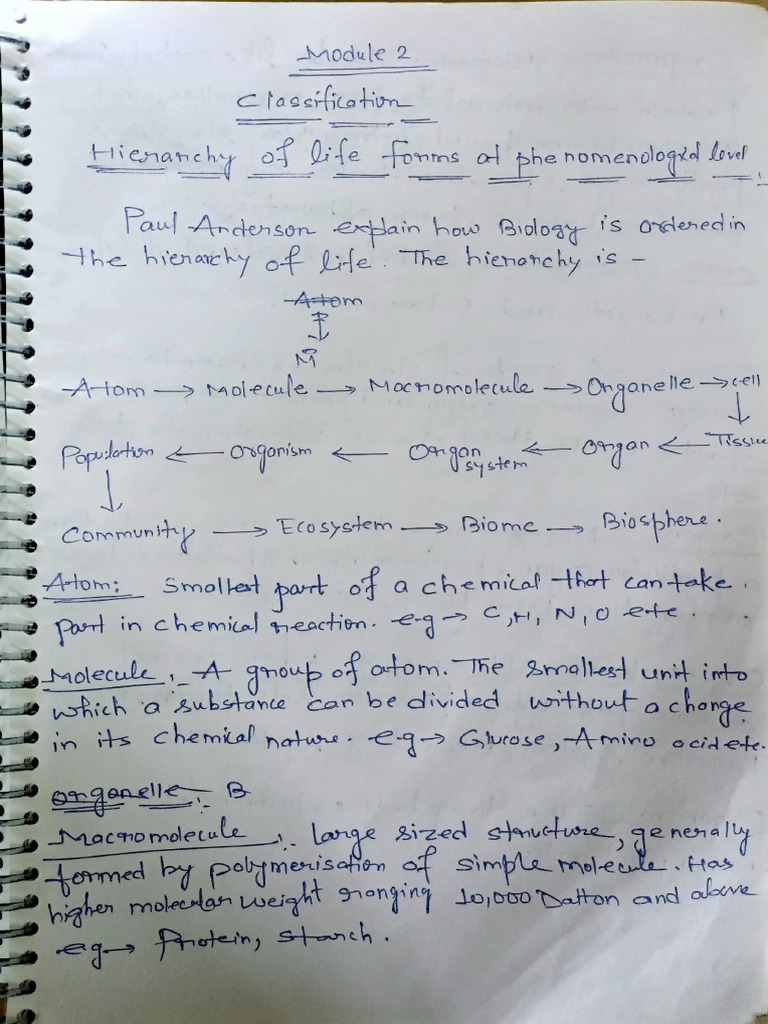 Module 2
Classification
Hierarchy of life forms at phenomenological level :
Paul Anderson explain how Biology is ordered in
the hierarchy of life. The hierarchy is -
Atom
M
Atom → Molecule → Macromolecule → Organelle → cell
Population ← organism ← Organ system ← Organ ← Tissue
Community → Ecosystem → Biome → Biosphere.
Atom: Smallest part of a chemical that can take
part in chemical reaction. e.g → C, H, N, O etc.
Molecule :- A group of atom. The smallest unit into
which a substance can be divided without a change
in its chemical nature. e.g → Glucose, Amino acid etc.
Organelle :- B
Macromolecule :- large sized structure, generally
formed by polymerisation of simple molecule. Has
higher molecular weight ranging 10,000 Dalton and above
e.g → Protein, starch.